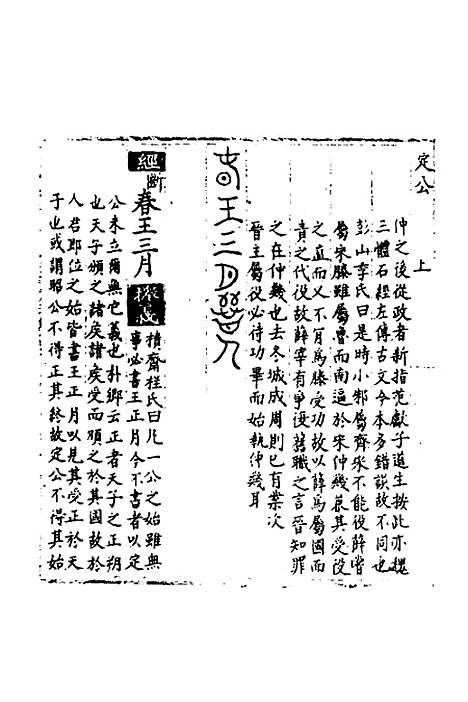 定公
上
仲之後從政者新指范獻子道生按此亦魏
三體石經左傳古文今本多錯誤故不同也
彭山季氏曰是時小邾屬齊來不能役薛嘗
屬宋滕雖屬魯而南逼於宋仲幾衰其受役
之直而又不肯為滕受功故以薛為屬國而
責之代役故薛宰有爭復舊職之言晉知罪
之在仲幾也去冬城成周則已有業次
晉主屬役必待功畢而始執仲幾耳
王三月
經
斷
春王三月
積齋程氏曰凡一公之始雖無
事必書王正月今不書者以定
公未立爾無它義也朴鄉云正者天子之正朔
也天子頒之諸矦諸矦受而頒之於其國故於
人君即位之始皆書王正月以見其受正於天
子也或謂昭公不得正其終故定公不得其始